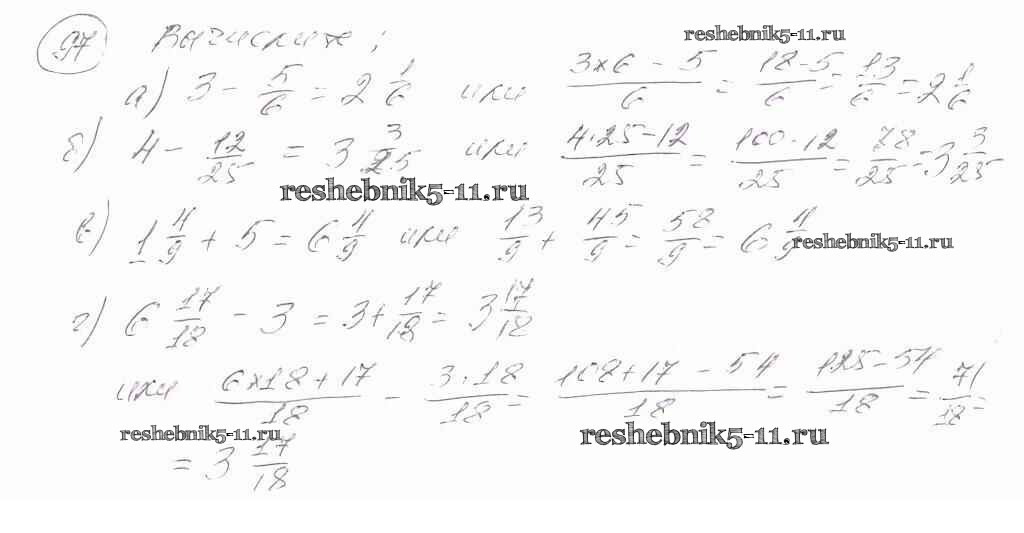 97 Вычислите;
reshebnik5-11.ru
а) 3 - 5/6 = 2 1/6 или (3×6 - 5)/6 = (18-5)/6 = 13/6 = 2 1/6
б) 4 - 12/25 = 3 3/25 или (4·25-12)/25 = (100-12)/25 = 78/25 = 3 3/25
reshebnik5-11.ru
в) 1 4/9 + 5 = 6 4/9 или 13/9 + 45/9 = 58/9 = 6 4/9
reshebnik5-11.ru
г) 6 17/18 - 3 = 3 + 17/18 = 3 17/18
или (6×18+17)/18 - (3·18)/18 = (108+17-54)/18 = (125-54)/18 = 71/18 =
reshebnik5-11.ru
reshebnik5-11.ru
= 3 17/18